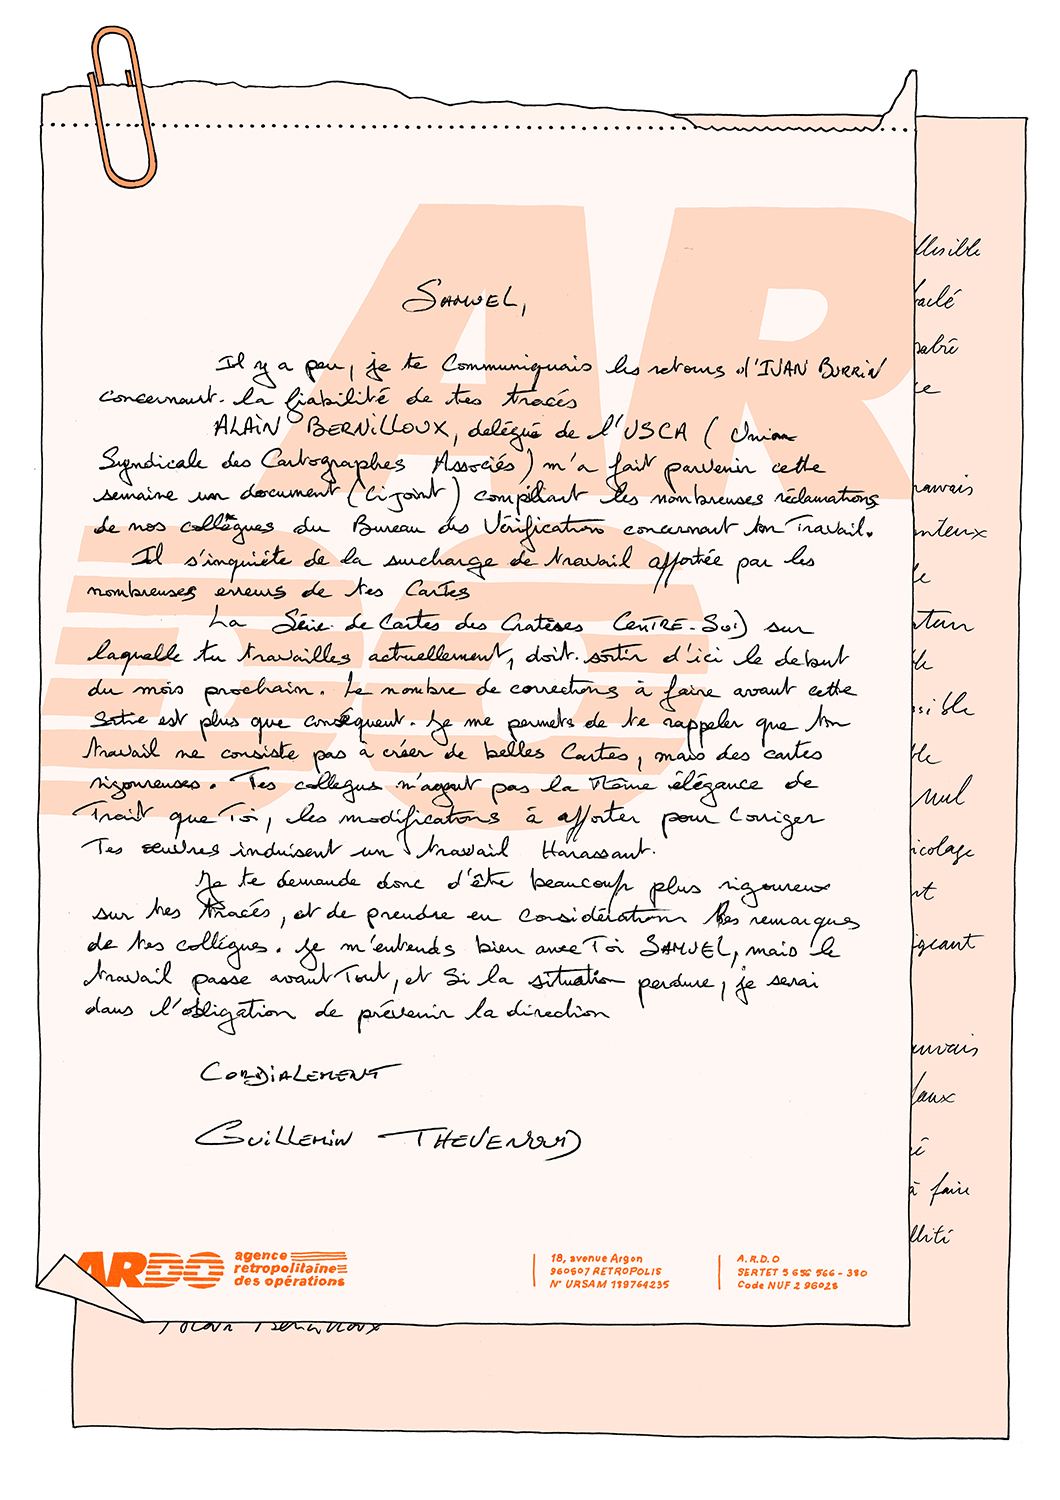 AR
DO
SAMUEL,
Il y a peu, je te Communiquais les retours d'IVAN BURRIN
concernant la fiabilité de tes tracés
ALAIN BERNILLOUX, délégué de l'USCA (Union
Syndicale des Cartographes Associés) m'a fait parvenir cette
semaine un document (Ci joint) compilant les nombreuses réclamations
de nos collègues du Bureau des Vérification concernant ton Travail.
Il s'inquiète de la surcharge de travail apportée par les
nombreuses erreurs de tes Cartes
La Série de Cartes des Cratères CENTRE-SUD sur
laquelle tu travailles actuellement, doit sortir d'ici le debut
du mois prochain. Le nombre de corrections à faire avant cette
sortie est plus que conséquent. Je me permets de te rappeler que ton
travail ne consiste pas à créer de belles Cartes, mais des cartes
rigoureuses. Tes collegues n'ayant pas la Même élégance de
Trait que Toi, les modifications à apporter pour Corriger
Tes œuvres induisent un travail Harassant.
Je te demande donc d'être beaucoup plus rigoureux
sur tes tracés, et de prendre en considération les remarques
de tes collègues. Je m'entends bien avec Toi SAMUEL, mais le
travail passe avant Tout, et Si la situation perdure, je serai
dans l'obligation de prévenir la direction
CORDIALEMENT
GUILLEMIN THEVENOUD
llisible
baclé
ce
mauvais
enteux
sible
ble
Nul
ricolage
igeant
mauvais
faux
à faire
Alain Bernilloux
ARDO agence
retropolitaine
des opérations
18, avenue Argon
960607 RETROPOLIS
N° URSAM 119764235
A.R.D.O
SERTET 5 656 566 - 380
Code NUF 2 96028